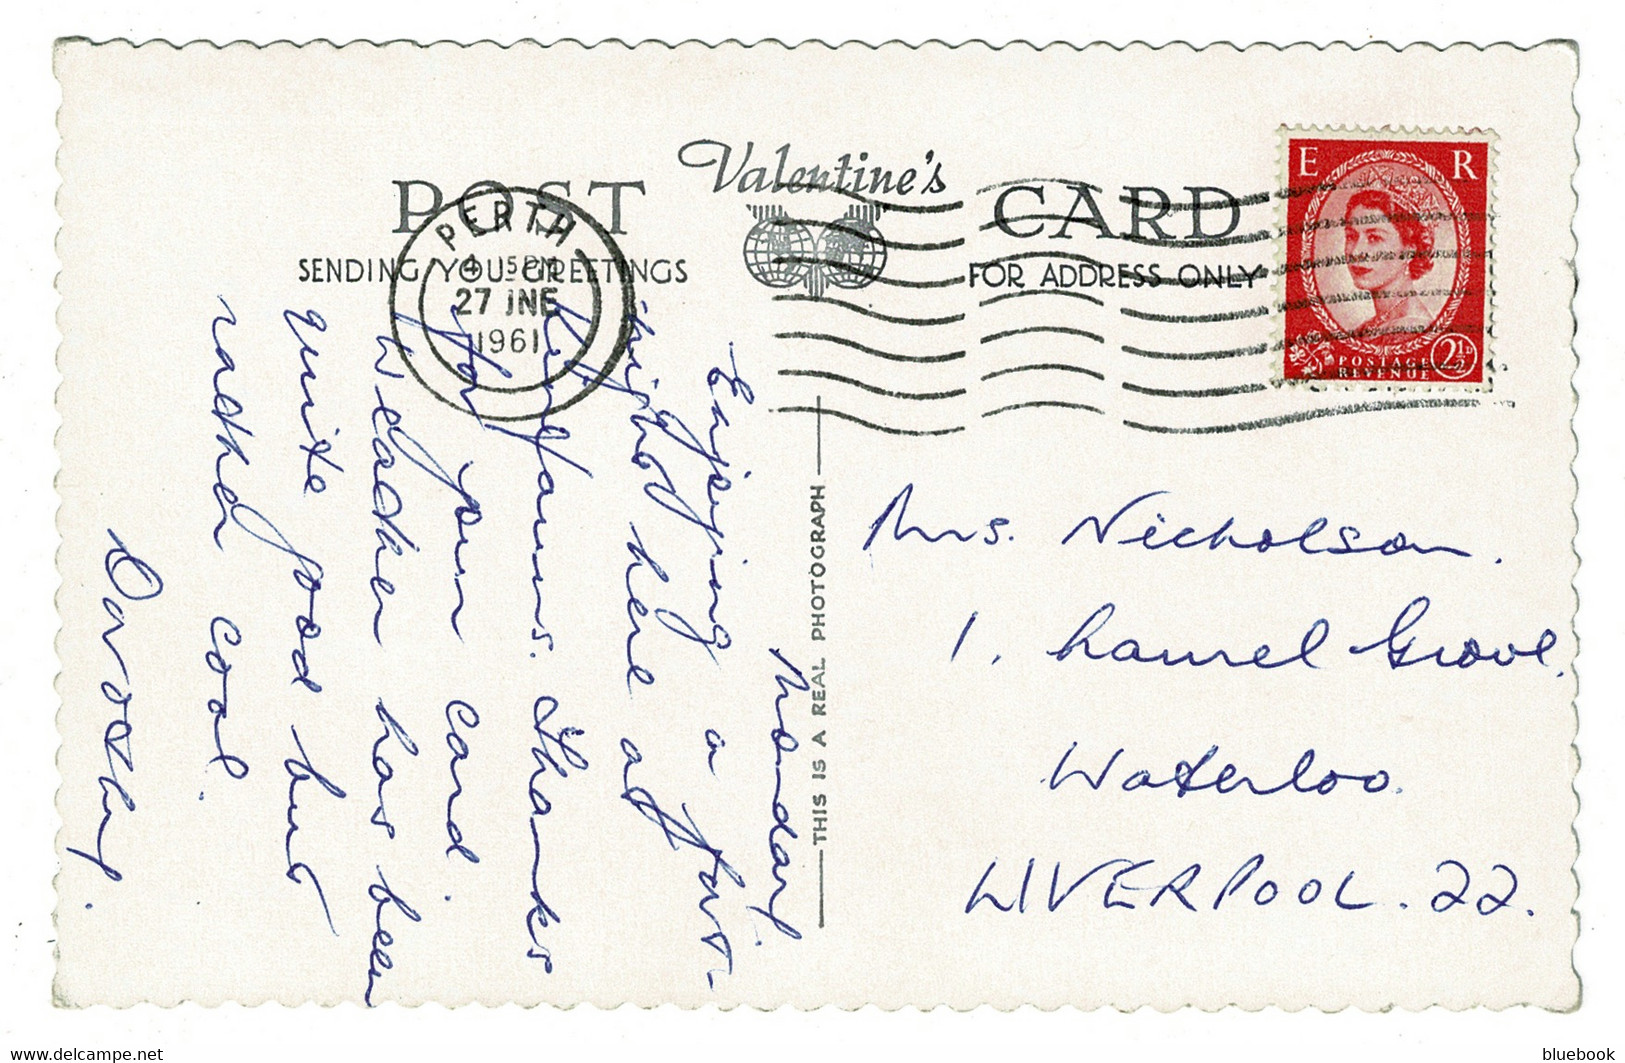 Valentine's
POST CARD
SENDING YOU GREETINGS
FOR ADDRESS ONLY
PERTH
4 15PM
27 JNE
1961
E R
POSTAGE
REVENUE
2½D
THIS IS A REAL PHOTOGRAPH
Monday.
Enjoying a fort-
night here at
Kinfauns. Thanks
for your card.
Weather has been
quite good but
rather cool.
Dorothy.
Mrs. Nicholson.
1. Laurel Grove.
Waterloo.
LIVERPOOL. 22.
www.delcampe.net
bluebook